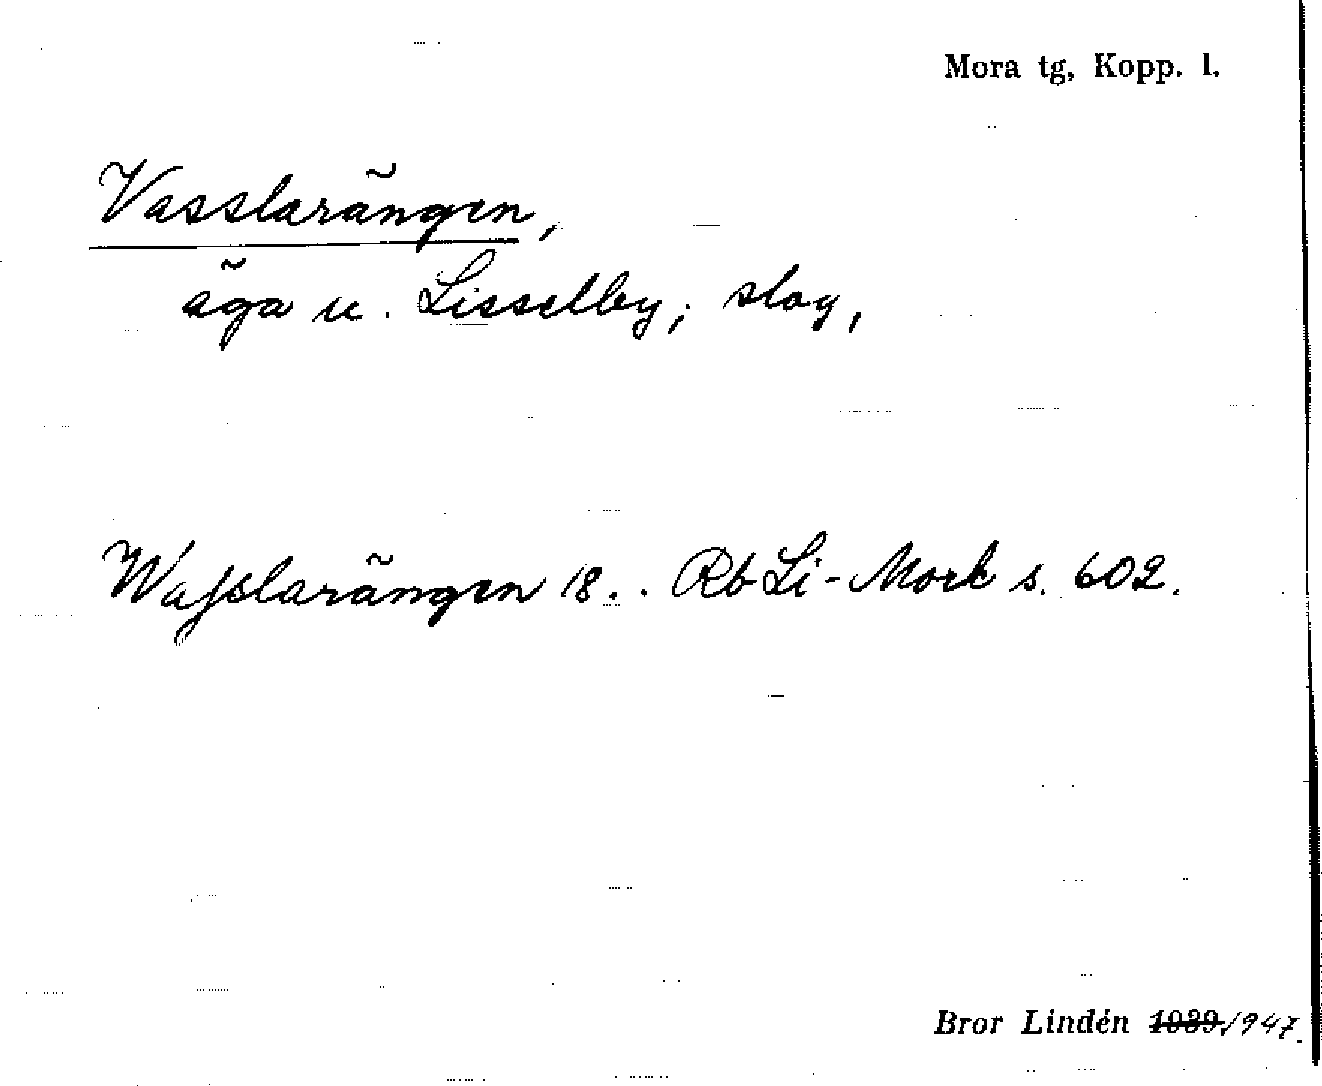 Mora tg, Kopp. l.
Vasslarängen,
äga u. Lisselby; slog,
Wasslarängen 18.. Rb Li-Mork s. 602.
Bror Lindén 1939/947.